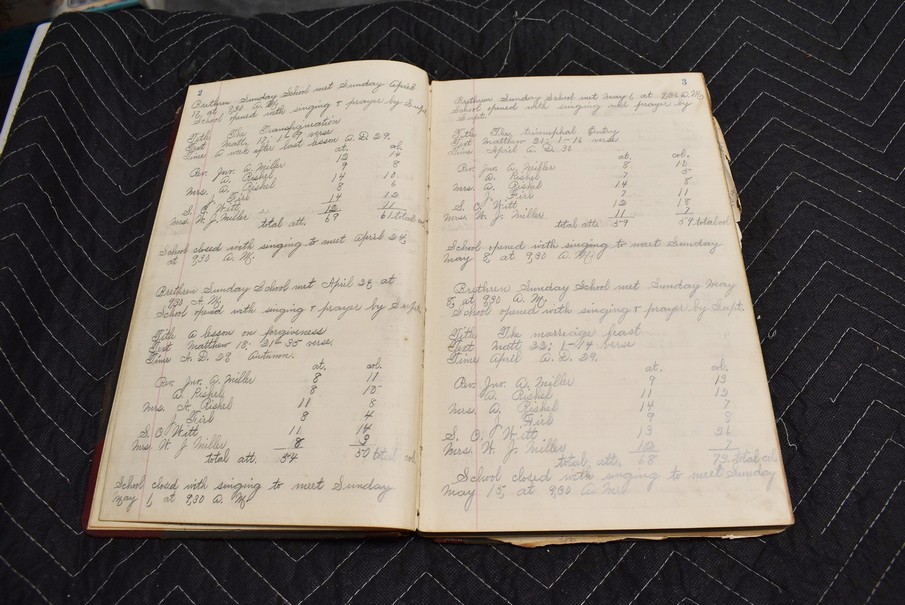 2
Brethren Sunday School met Sunday April
17, at 9;30 A. M;
School opened with singing & prayer by Supt
Title The Transfiguration
Text Matt, 17; 1-9 verse
Time A week after last lesson A. D. 29.
at. col.
Rev. Jno. A. Miller 12 14
A. Rishel 9 8
Mrs. A. Rishel 14 10
J. Firl 8 6
S. C. Witt 14 12
Mrs. W. J. Miller 12 11
total att. 69 61 total
School closed with singing to meet April 24,
at 9;30 A. M;
Brethren Sunday School met April 24, at
9;30 A. M;
School opened with singing & prayer by Supt,
Title A lesson on forgiveness
Text Matthew 18; 21-35 verse,
Time A. D. 29 Autumn.
at. col.
Rev. Jno. A. Miller 8 11
A. Rishel 8 10
Mrs. A. Rishel 11 8
J. Firl 8 4
S. C. Witt 11 14
Mrs. W. J. Miller 8 3
total att. 54 50 total col.
School closed with singing to meet Sunday
May 1, at 9;30 A. M
3
Brethren Sunday School met May 1, at 9;30 A. M;
School opened with singing and prayer by
Supt.
Title The triumphal Entry
Text Matthew 21; 1-16 verse
Time April A. D. 30
at. col.
Rev. Jno. A. Miller 8 10
A. Rishel 7
Mrs. A. Rishel 14 8
J. Firl 7 11
S. C. Witt 12 18
Mrs. W. J. Miller 11 7
total att. 59 59 total col
School opened with singing to meet Sunday
May 8, at 9;30 A. M;
Brethren Sunday School met Sunday May
8, at 9;30 A. M;
School opened with singing & prayer by Supt.
Title The marriage feast
Text Matt, 22; 1-14 verse
Time April A. D. 29.
at. col.
Rev. Jno. A. Miller 9 13
A. Rishel 11 12
Mrs. A. Rishel 14 7
J. Firl 9 8
S. C. Witt 13 26
Mrs. W. J. Miller 12
total, att, 68 73 total col
School closed with singing to meet Sunday
May 15, at 9;30 A.